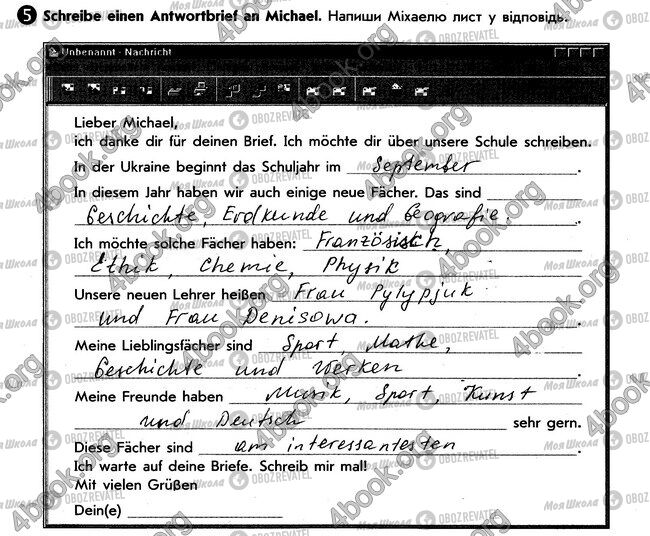 5 Schreibe einen Antwortbrief an Michael. Напиши Міхаелю лист у відповідь.
Unbenannt - Nachricht
Lieber Michael,
ich danke dir für deinen Brief. Ich möchte dir über unsere Schule schreiben.
In der Ukraine beginnt das Schuljahr im September.
In diesem Jahr haben wir auch einige neue Fächer. Das sind
Geschichte, Erdkunde und Geografie.
Ich möchte solche Fächer haben: Französisch,
Ethik, Chemie, Physik
Unsere neuen Lehrer heißen Frau Pylypjuk
und Frau Denisowa.
Meine Lieblingsfächer sind Sport, Mathe,
Geschichte und Werken
Meine Freunde haben Musik, Sport, Kunst
und Deutsch sehr gern.
Diese Fächer sind am interessantesten.
Ich warte auf deine Briefe. Schreib mir mal!
Mit vielen Grüßen
Dein(e)